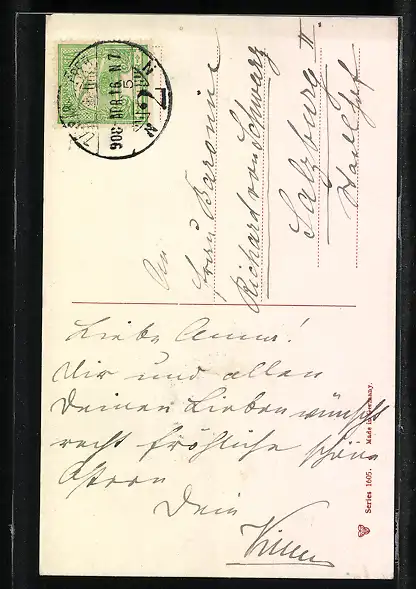 An
Frau Baronin
Richard von Schwarz
Salzburg II
Liebe Anna!
Dir und allen
Deinen Lieben wünscht
recht fröhliche schöne
Ostern
Dein
Series 1605. Made in Germany.